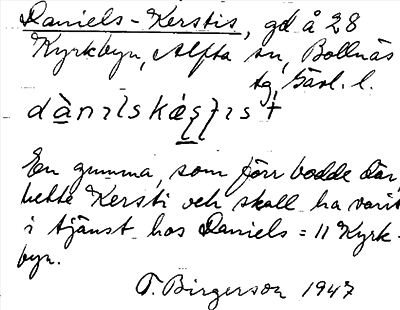 Daniels-Kerstis, gd å 28
Kyrkbyn, Alfta sn, Bollnäs
tg, Gävl. l.
En gumma, som förr bodde där,
hette Kersti och skall ha varit
i tjänst hos Daniels = 11 Kyrk-
byn.
T. Birgerson 1947